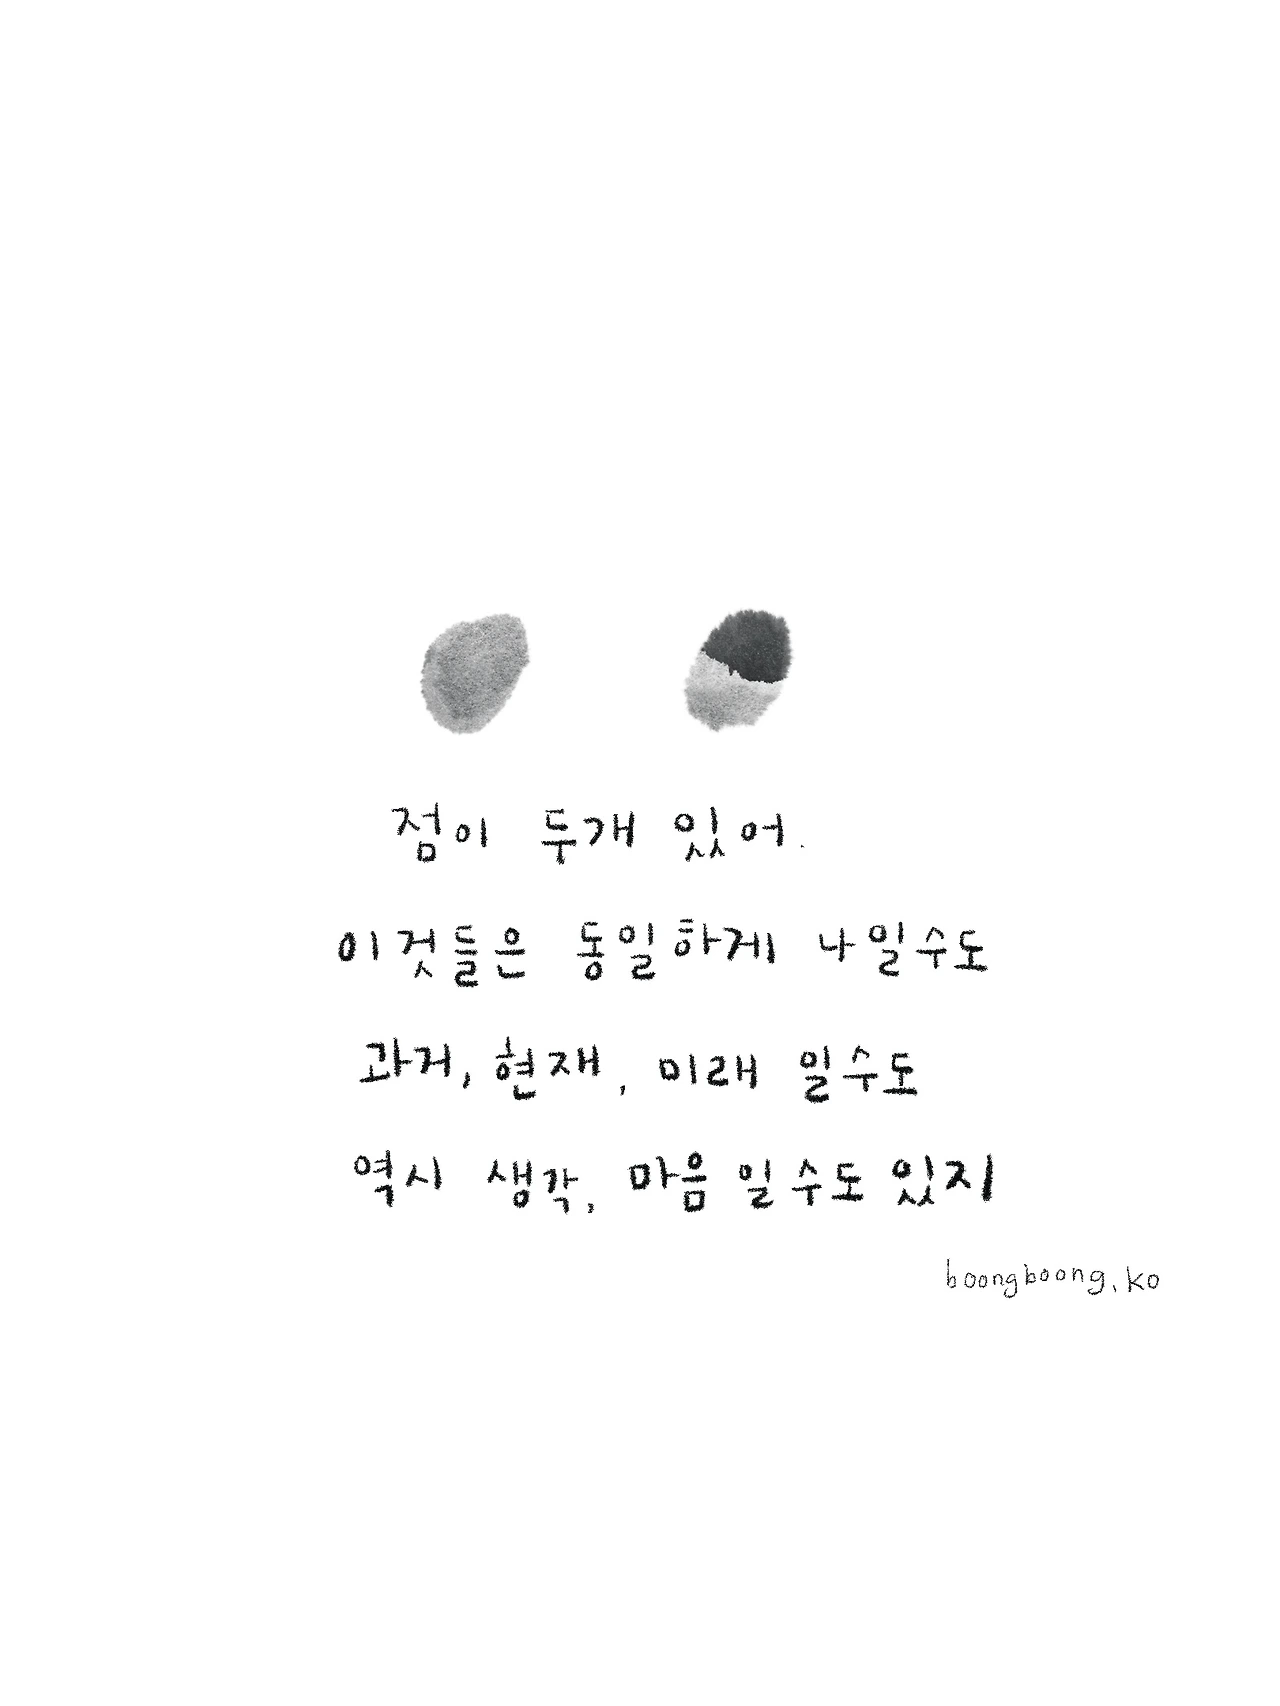 점이 두개 있어.
이것들은 동일하게 나일수도
과거, 현재, 미래 일수도
역시 생각, 마음 일수도 있지
boongboong.ko